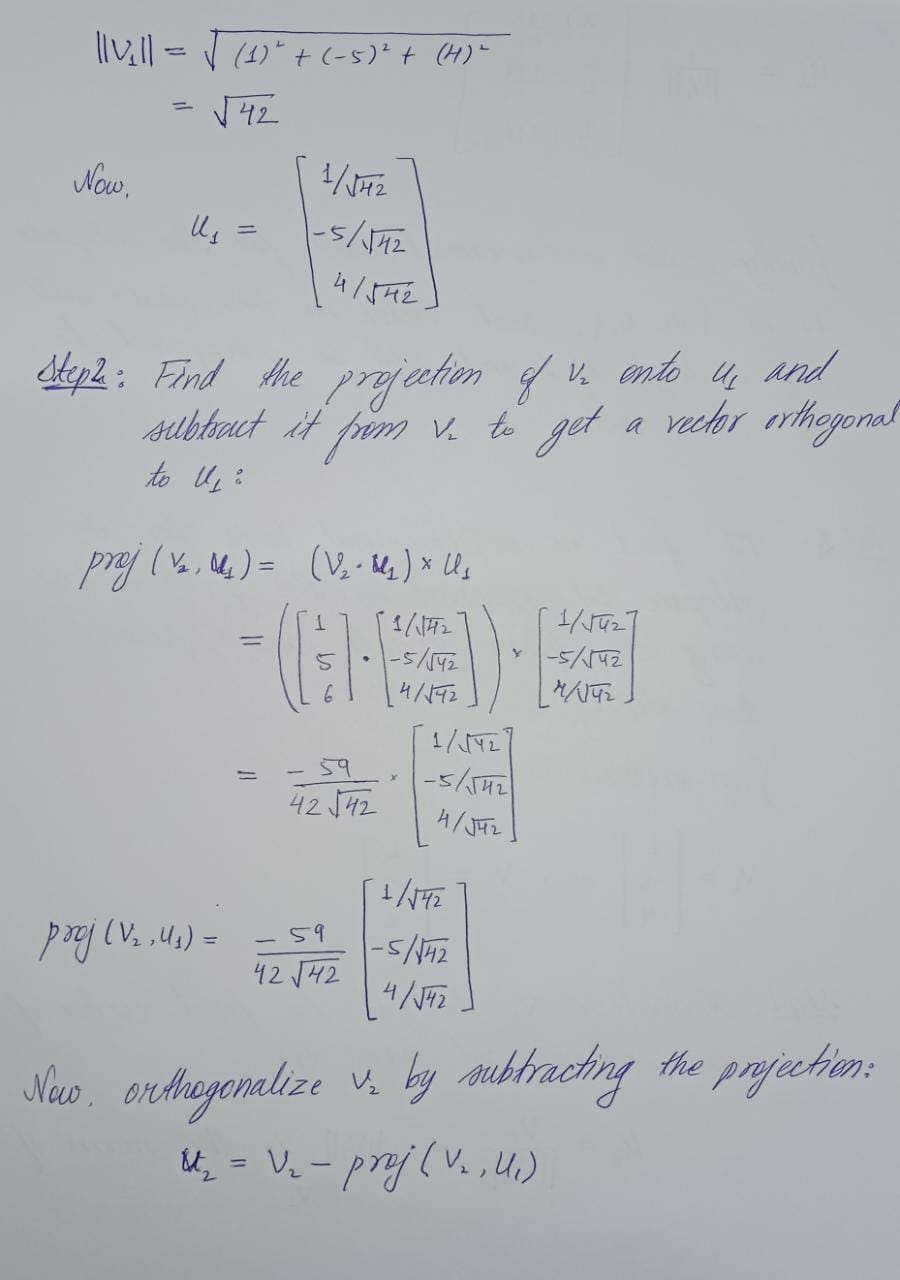 ||V₁|| = √(1)² + (-5)² + (4)²
= √42
Now,
u₁ = [1/√42
-5/√42
4/√42]
Step2: Find the projection of v₂ onto u₁ and
subtract it from v₂ to get a vector orthogonal
to u₁:
proj (v₂, u₁) = (V₂ · u₁) × u₁
= ([1 5 6] · [1/√42 -5/√42 4/√42]) × [1/√42 -5/√42 4/√42]
= -59/42√42 × [1/√42 -5/√42 4/√42]
proj (V₂, u₁) = -59/42√42 [1/√42 -5/√42 4/√42]
Now, orthogonalize v₂ by subtracting the projection:
u₂ = V₂ - proj (V₂, u₁)